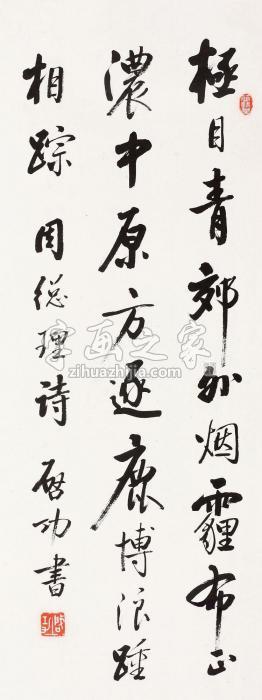 極目青郊外烟霾布正
濃中原方逐鹿博浪踵
相踪 周總理詩 啟功書
字画之家
zihuazhijia.com